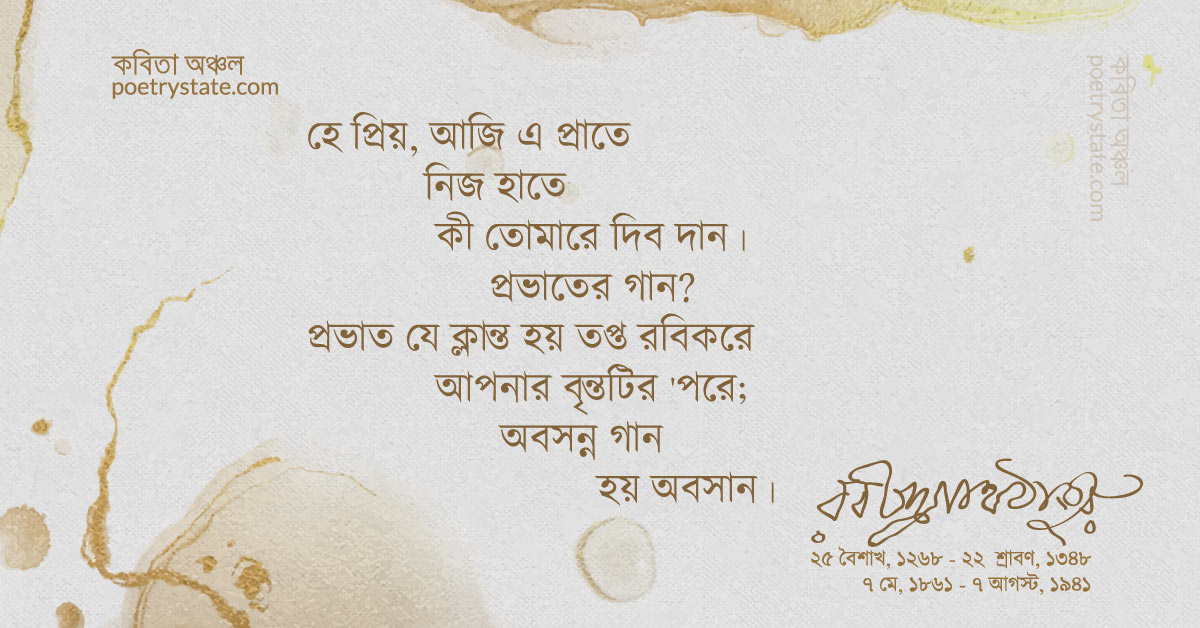 কবিতা অঞ্চল
poetrystate.com
হে প্রিয়, আজি এ প্রাতে
নিজ হাতে
কী তোমারে দিব দান।
প্রভাতের গান?
প্রভাত যে ক্লান্ত হয় তপ্ত রবিকরে
আপনার বৃন্তটির 'পরে;
অবসন্ন গান
হয় অবসান।
রবীন্দ্রনাথ ঠাকুর
২৫ বৈশাখ, ১২৬৮ - ২২ শ্রাবণ, ১৩৪৮
৭ মে, ১৮৬১ - ৭ আগস্ট, ১৯৪১
কবিতা অঞ্চল
poetrystate.com